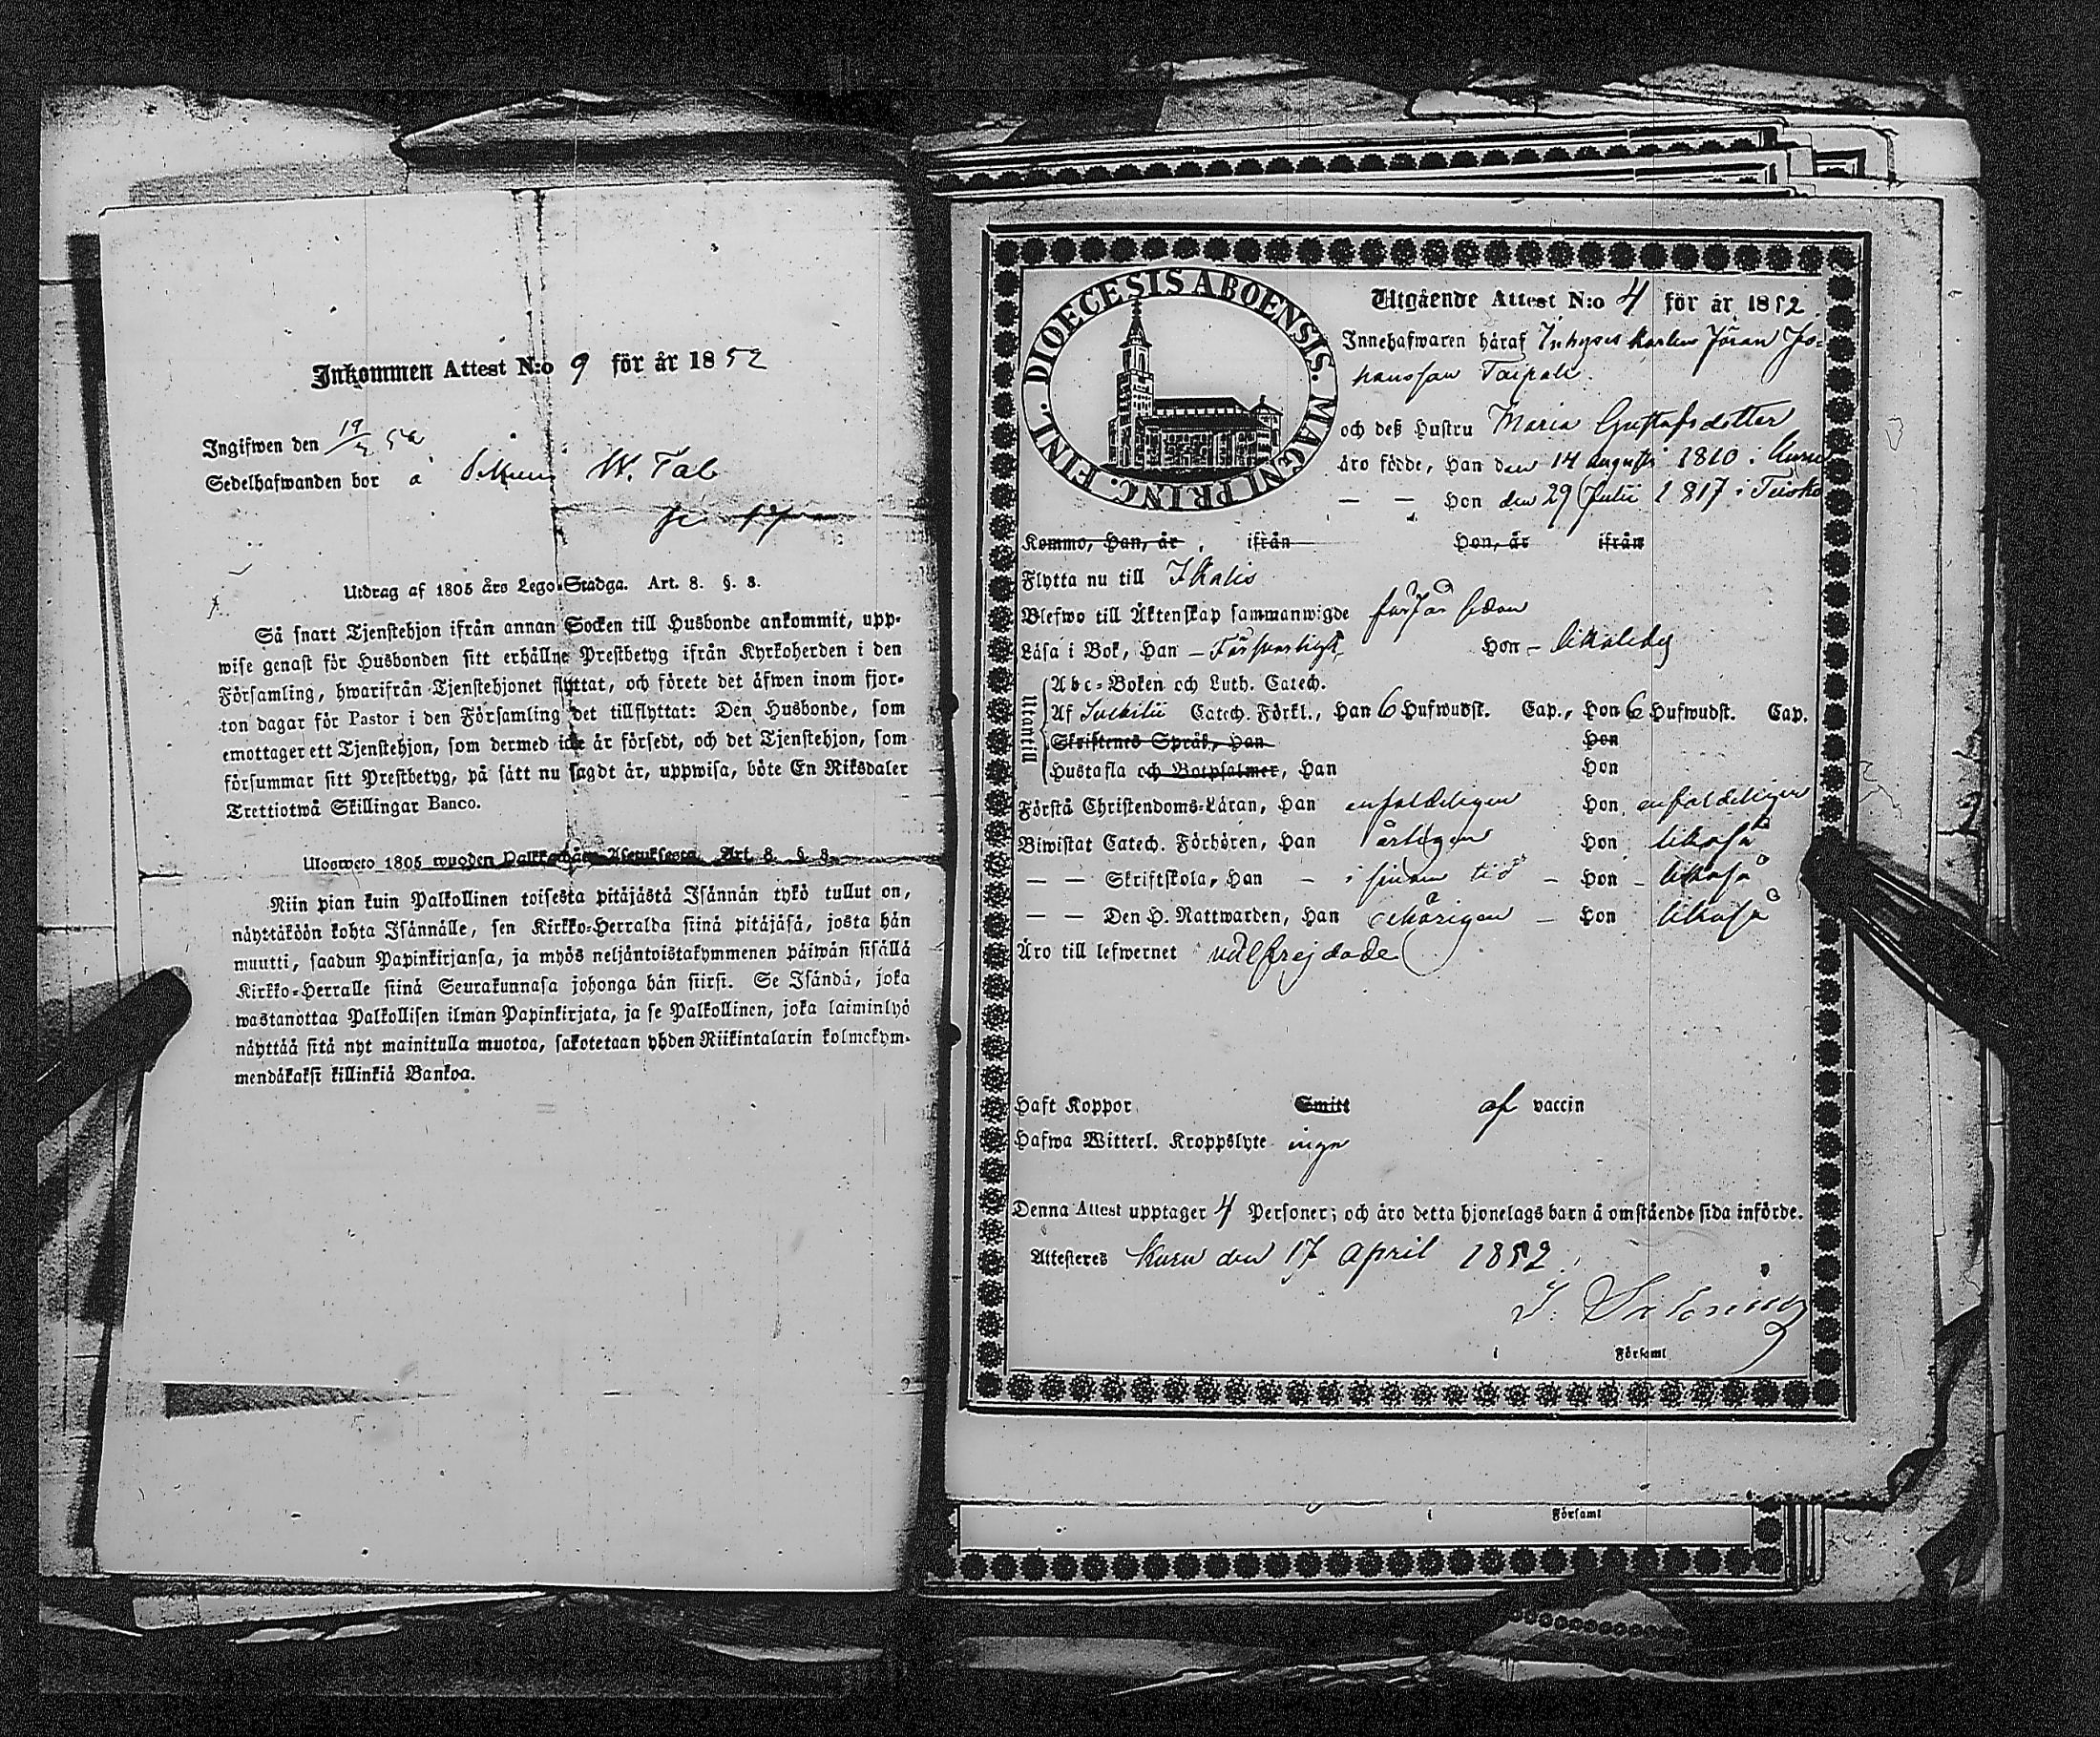 Inkommen Attest N:o 9 för år 1852
Ingifwen den 19/ 52
Sedelhafwanden bor å W. Tal
Utdrag af 1805 års Lego-Stadga. Art. 8. §. 8.
Så snart Tjenstehjon ifrån annan Socken till Husbonde ankommit, upp-
wise genast för Husbonden sitt erhållne Prestbetyg ifrån Kyrkoherden i den
Församling, hwarifrån Tjenstehjonet flyttat, och förete det äfwen inom fjor-
ton dagar för Pastor i den Församling det tillflyttat: Den Husbonde, som
emottager ett Tjenstehjon, som dermed icke är försedt, och det Tjenstehjon, som
försummar sitt Prestbetyg, på sätt nu sagdt är, uppwisa, böte En Riksdaler
Trettiotwå Skillingar Banco.
Ulosweto 1805 wuoden Palkkowäen Asetuksesta. Art. 8. §. 8.
Niin pian kuin Palkollinen toisesta pitäjästä Isännän tykö tullut on,
näyttäköön kohta Isännälle, sen Kirkko-Herralda siinä pitäjäsä, josta hän
muutti, saadun Papinkirjansa, ja myös neljäntoistakymmenen päiwän sisällä
Kirkko-Herralle siinä Seurakunnasa johonga hän siirsi. Se Isändä, joka
wastanottaa Palkollisen ilman Papinkirjata, ja se Palkollinen, joka laiminlyö
näyttää sitä nyt mainitulla muotoa, sakotetaan yhden Riikintalarin kolmekym-
mendäkaksi killinkiä Bankoa.
DIOECESIS ABOENSIS. MAGNI PRINC. FINL.
Utgående Attest N:o 4 för år 1852.
Innehafwaren häraf Inhyses Karlen Jöran Jo-
hansson Taipale.
och deß Hustru Maria Gustafsdotter
äro födde, Han den 14 Augusti 1810 i Kuru
— — Hon den 29 Julii 1817 i Teisko
Kommo, Han, år ifrån Hon, år ifrån
Flytta nu till Ikalis
Blefwo till Äktenskap sammanwigde för år sedan
Läsa i Bok, Han – Försvarligt Hon – likaledes
Utantill
Abc-Boken och Luth. Catech.
Af Svebilii Catech. Förkl., Han 6 Hufwudst. Cap., Hon 6 Hufwudst. Cap.
Skriftenes Språk, Han Hon
Hustafla och Botpsalmer, Han Hon
Förstå Christendoms-Läran, Han enfaldeligen Hon enfaldeligen
Biwistat Catech. Förhören, Han årligen Hon likaså
— — Skriftskola, Han – i sinom tid – Hon – likaså
— — Den H. Nattwarden, Han behörigen – Hon likaså
Äro till lefwernet välfrejdade
Haft Koppor Smitt af vaccin
Hafwa Witterl. Kroppslyte inga
Denna Attest upptager 4 Personer; och äro detta hjonelags barn å omstående sida införde.
Attesteres Kuru den 17 April 1852.
i Församl
i Församl